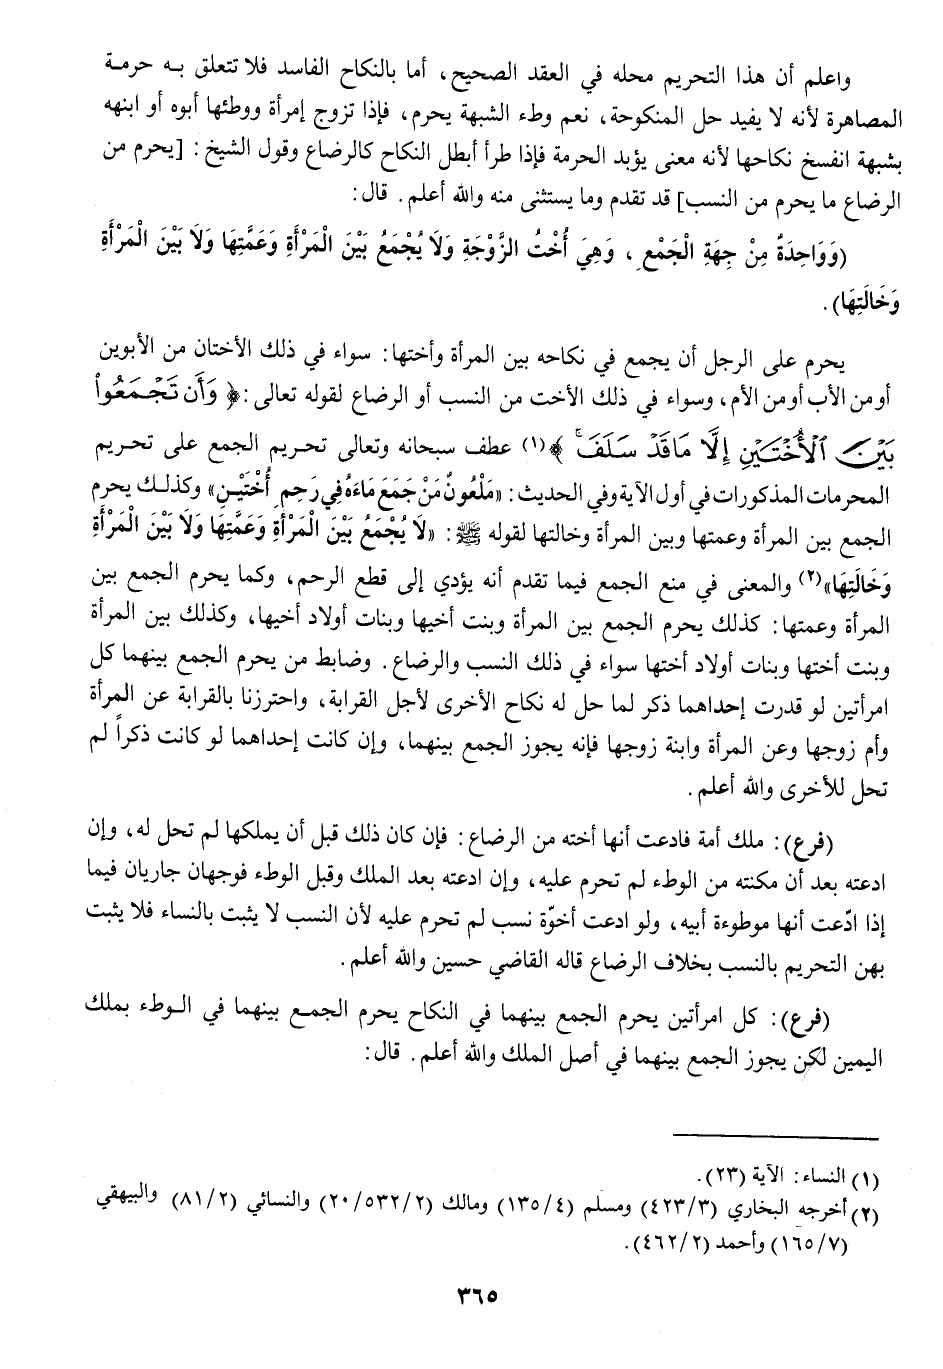 واعلم أن هذا التحريم محله في العقد الصحيح، أما بالنكاح الفاسد فلا تتعلق به حرمة
المصاهرة لأنه لا يفيد حل المنكوحة، نعم وطء الشبهة يحرم، فإذا تزوج إمرأة ووطئها أبوه أو ابنهه
بشبهة انفسخ نكاحها لأنه معنى يؤبد الحرمة فإذا طرأ أبطل النكاح كالرضاع وقول الشيخ: [يحرم من
الرضاع ما يحرم من النسب] قد تقدم وما يستثنى منه والله أعلم. قال:
(وَوَاحِدَةٌ مِنْ جِهَةِ الْجَمْعِ، وَهِيَ أُخْتُ الزَّوْجَةِ وَلَا يُجْمَعُ بَيْنَ الْمَرْأَةِ وَعَمَّتِهَا وَلَا بَيْنَ الْمَرْأَةِ
وَخَالَتِهَا).
يحرم على الرجل أن يجمع في نكاحه بين المرأة وأختها: سواء في ذلك الأختان من الأبوين
أو من الأب أو من الأم، وسواء في ذلك الأخت من النسب أو الرضاع لقوله تعالى: ﴿وَأَن تَجْمَعُواْ
بَيْنَ ٱلْأُخْتَيْنِ إِلَّا مَا قَدْ سَلَفَ﴾(١) عطف سبحانه وتعالى تحريم الجمع على تحريم
المحرمات المذكورات في أول الآية وفي الحديث: «مَلْعُونٌ مَنْ جَمَعَ مَاءَهُ فِي رَحِمِ أُخْتَيْنِ» وكذلك يحرم
الجمع بين المرأة وعمتها وبين المرأة وخالتها لقوله ﷺ: «لَا يُجْمَعُ بَيْنَ الْمَرْأَةِ وَعَمَّتِهَا وَلَا بَيْنَ الْمَرْأَةِ
وَخَالَتِهَا»(٢) والمعنى في منع الجمع فيما تقدم أنه يؤدي إلى قطع الرحم، وكما يحرم الجمع بين
المرأة وعمتها: كذلك يحرم الجمع بين المرأة وبنت أخيها وبنات أولاد أخيها، وكذلك بين المرأة
وبنت أختها وبنات أولاد أختها سواء في ذلك النسب والرضاع. وضابط من يحرم الجمع بينهما كل
امرأتين لو قدرت إحداهما ذكر لما حل له نكاح الأخرى لأجل القرابة، واحترزنا بالقرابة عن المرأة
وأم زوجها وعن المرأة وابنة زوجها فإنه يجوز الجمع بينهما، وإن كانت إحداهما لو كانت ذكراً لم
تحل للأخرى والله أعلم.
(فرع): ملك أمة فادعت أنها أخته من الرضاع: فإن كان ذلك قبل أن يملكها لم تحل له، وإن
ادعته بعد أن مكنته من الوطء لم تحرم عليه، وإن ادعته بعد الملك وقبل الوطء فوجهان جاريان فيما
إذا ادّعت أنها موطوءة أبيه، ولو ادعت أخوّة نسب لم تحرم عليه لأن النسب لا يثبت بالنساء فلا يثبت
بهن التحريم بالنسب بخلاف الرضاع قاله القاضي حسين والله أعلم.
(فرع): كل امرأتين يحرم الجمع بينهما في النكاح يحرم الجمع بينهما في الوطء بملك
اليمين لكن يجوز الجمع بينهما في أصل الملك والله أعلم. قال:
(١) النساء: الآية (٢٣).
(٢) أخرجه البخاري (٤٢٣/٣) ومسلم (١٣٥/٤) ومالك (٢٠/٥٣٢/٢) والنسائي (٨١/٢) والبيهقي
(١٦٥/٧) وأحمد (٤٦٢/٢).
٣٦٥